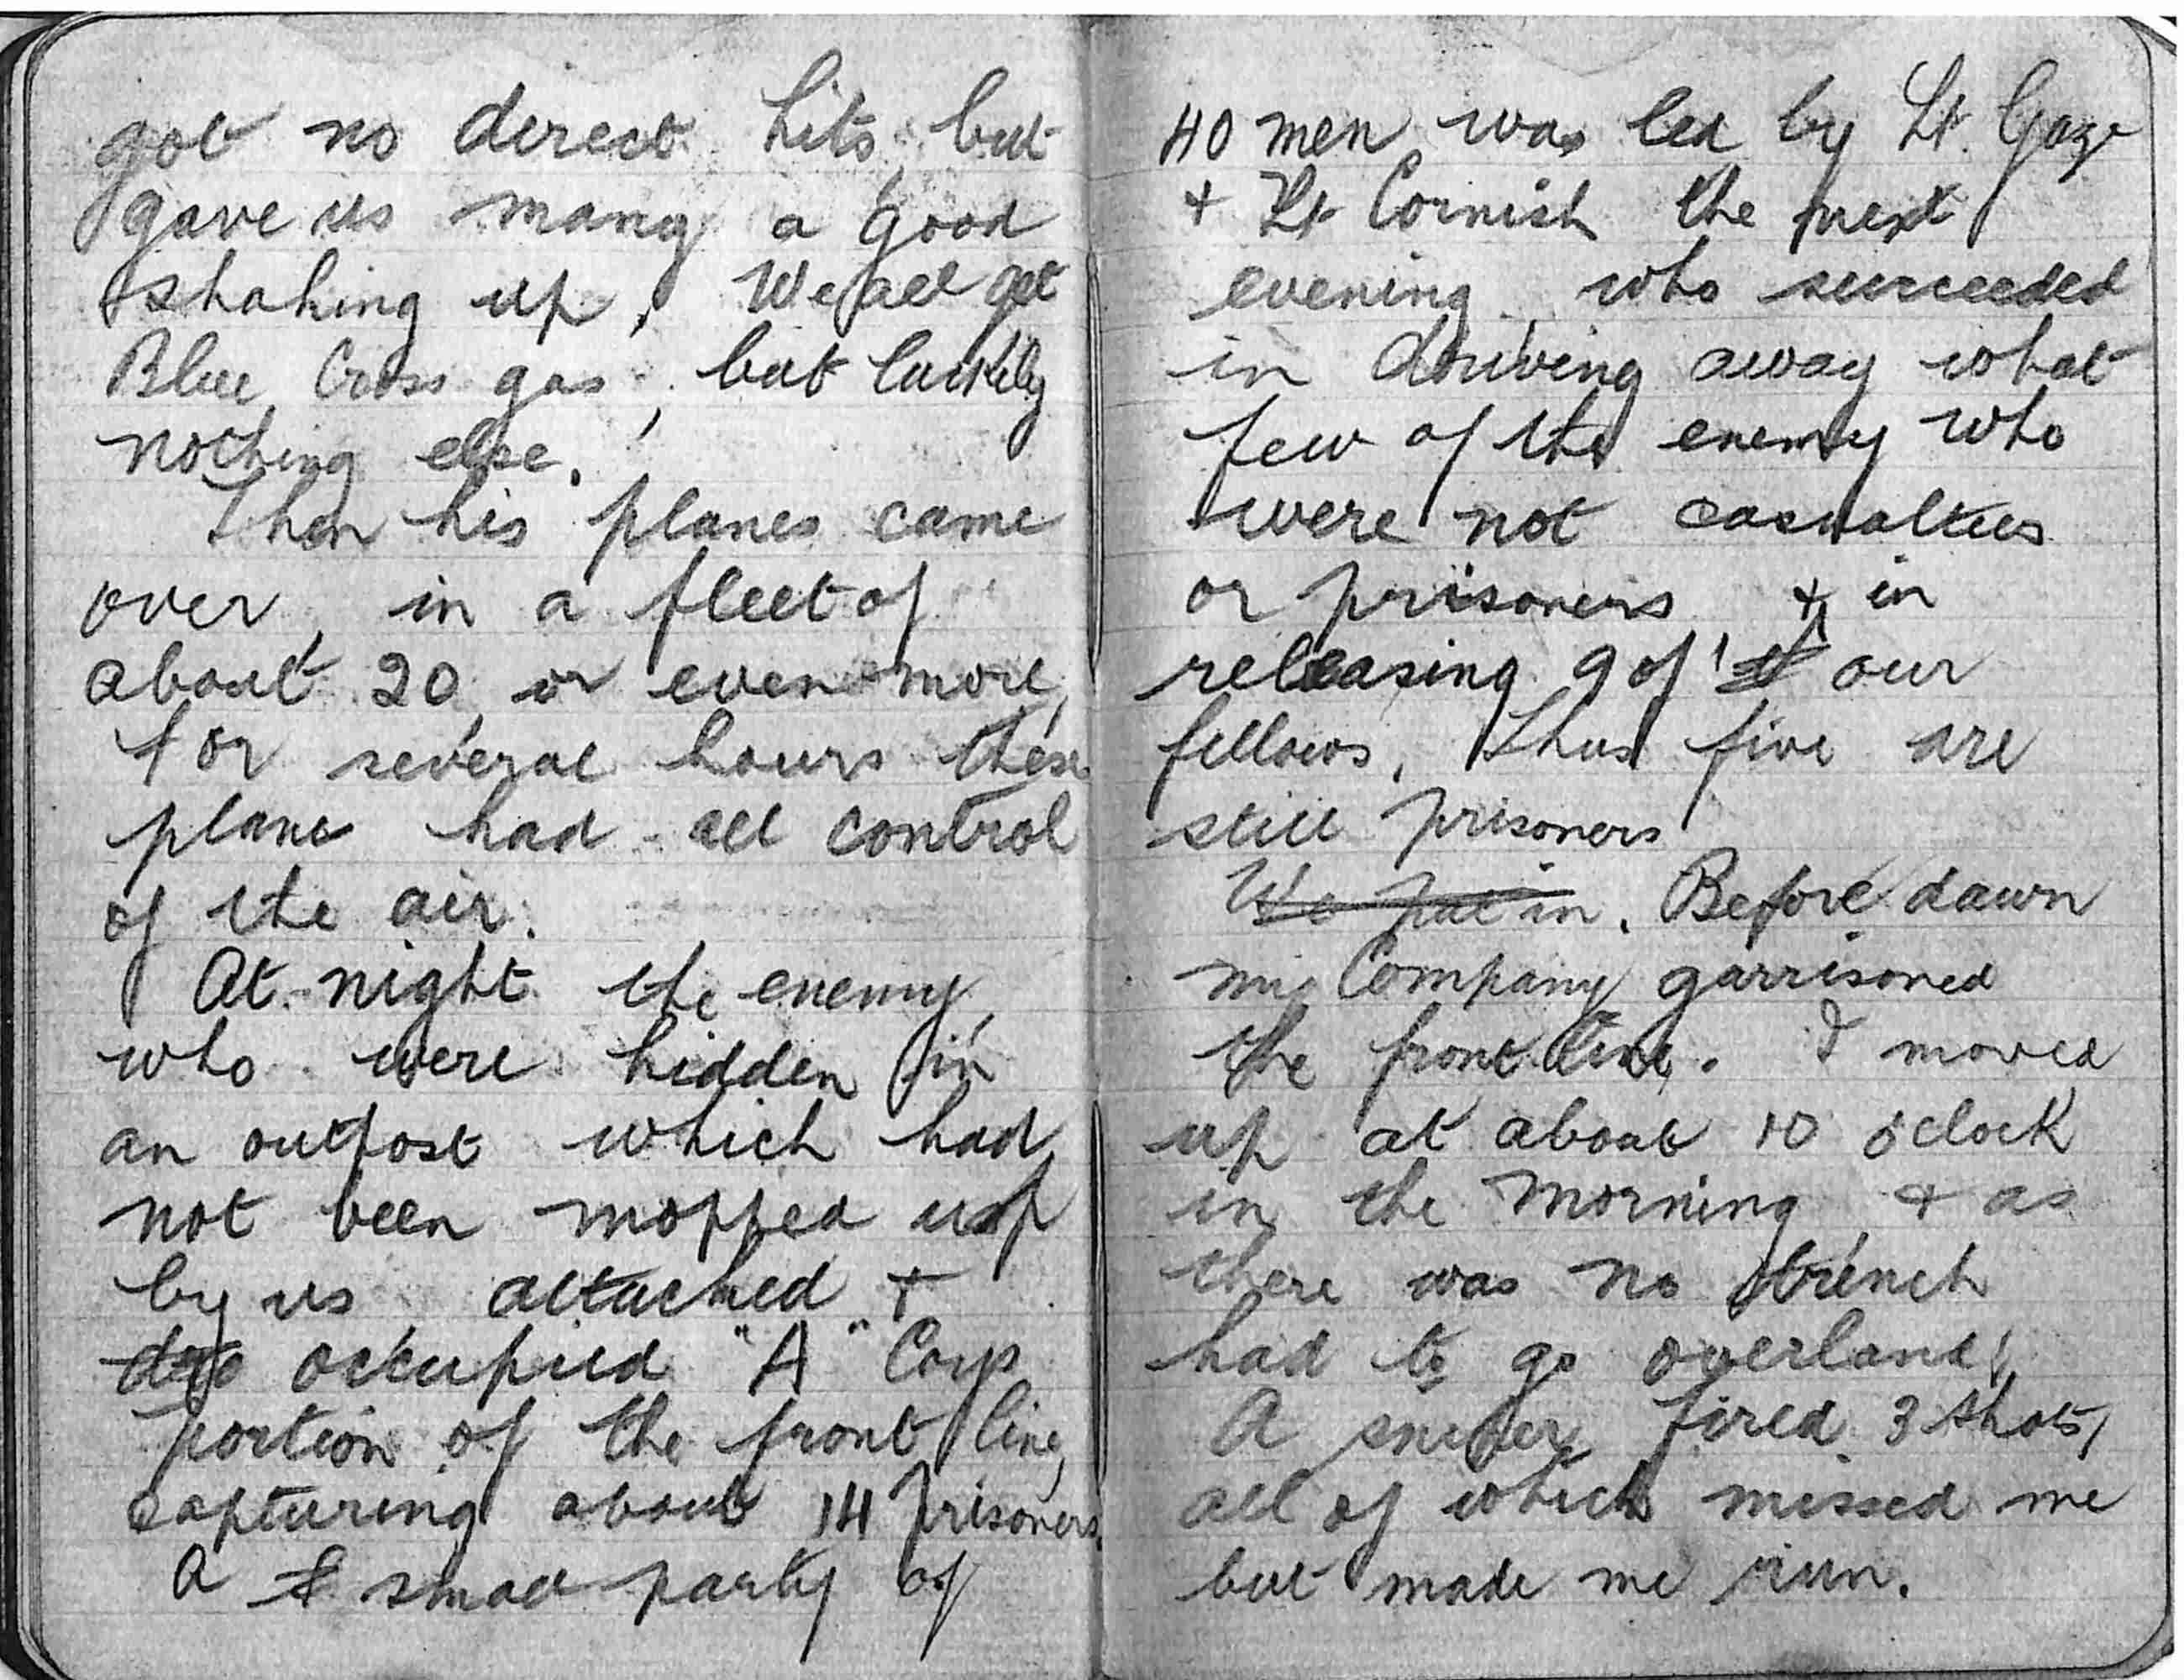 got no direct hits, but
gave us many a good
shaking up, We all got
Blue Cross gas, but luckily
nothing else.
Then his planes came
over, in a fleet of
about 20, or even more,
for several hours these
plane had all control
of the air.
At night the enemy,
who were hidden in
an outpost which had
not been mopped up
by us attacked +
occupied "A" Coys
portion of the front line,
capturing about 14 prisoners.
A small party of
40 men was led by Lt. Gaze
+ Lt Cornish the next
evening, who succeeded
in driving away what
few of the enemy who
were not casualties
or prisoners, + in
releasing 9 of our
fellows. Thus five are
still prisoners
We put in. Before dawn
my Company garrisoned
the front line. I moved
up at about 10 o'clock
in the morning, + as
there was no trench
had to go overland!
A sniper fired 3 shots,
all of which missed me
but made me run.